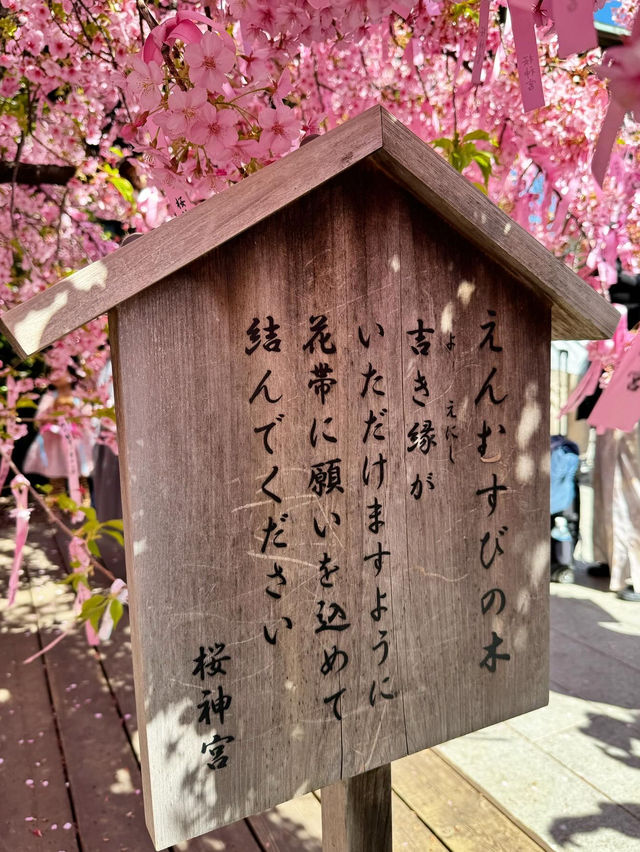 えんむすびの木
吉き縁が
よ
えにし
いただけますように
花帯に願いを込めて
結んでください
桜神宮
神宮
桜